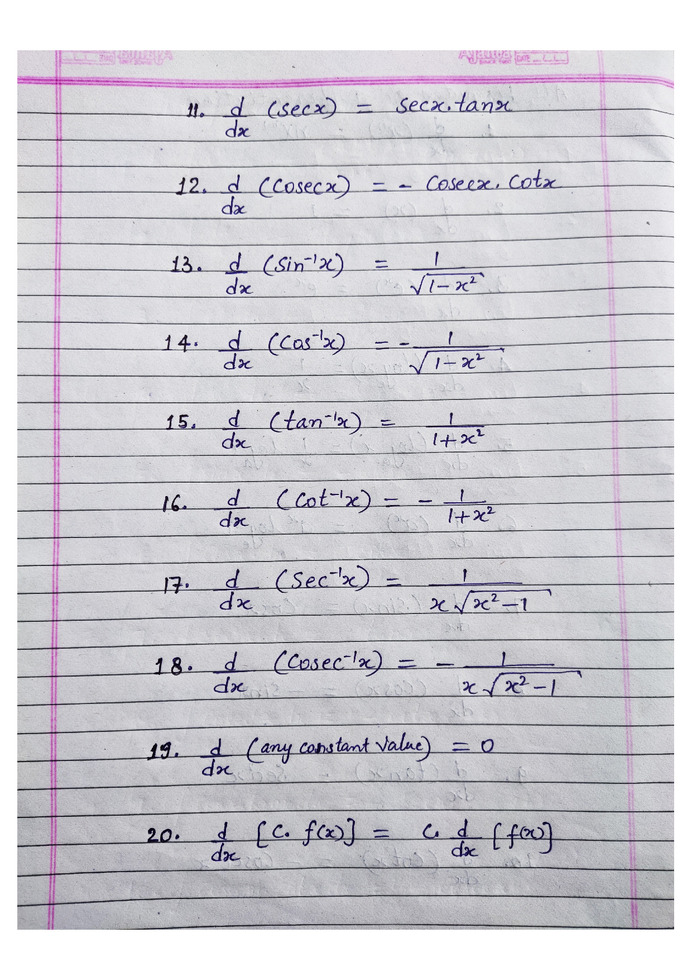 11. d/dx (secx) = secx.tanx
12. d/dx (Cosecx) = - Cosecx. Cotx
13. d/dx (Sin⁻¹x) = 1/√(1-x²)
14. d/dx (Cos⁻¹x) = - 1/√(1-x²)
15. d/dx (tan⁻¹x) = 1/(1+x²)
16. d/dx (Cot⁻¹x) = - 1/(1+x²)
17. d/dx (Sec⁻¹x) = 1/(x√(x²-1))
18. d/dx (Cosec⁻¹x) = - 1/(x√(x²-1))
19. d/dx (any constant Value) = 0
20. d/dx [C. f(x)] = C. d/dx [f(x)]